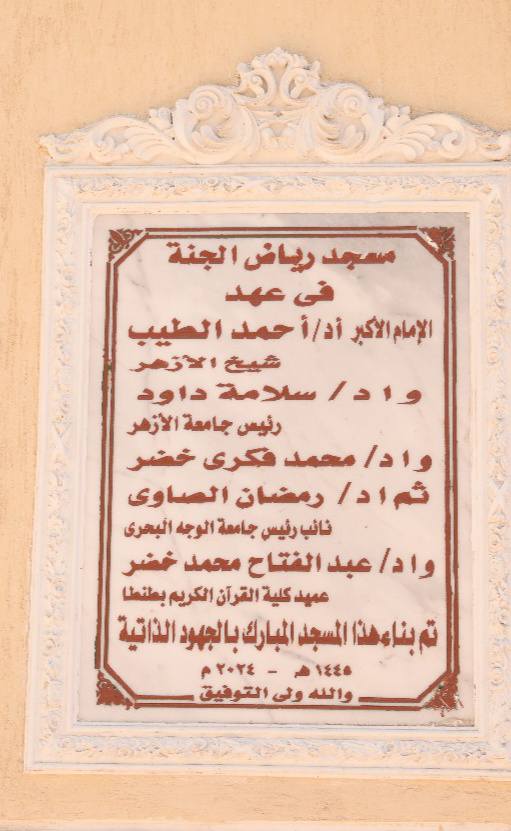 مسجد رياض الجنة
فى عهد
الإمام الأكبر أد/أحمد الطيب
شيخ الأزهر
و ا د/ سلامة داود
رئيس جامعة الأزهر
و ا د/ محمد فكرى خضر
ثم ا د/ رمضان الصاوى
نائب رئيس جامعة الوجه البحرى
و ا د/ عبد الفتاح محمد خضر
عميد كلية القرآن الكريم بطنطا
تم بناء هذا المسجد المبارك بالجهود الذاتية
١٤٤٥ هـ - ٢٠٢٤ م
والله ولى التوفيق